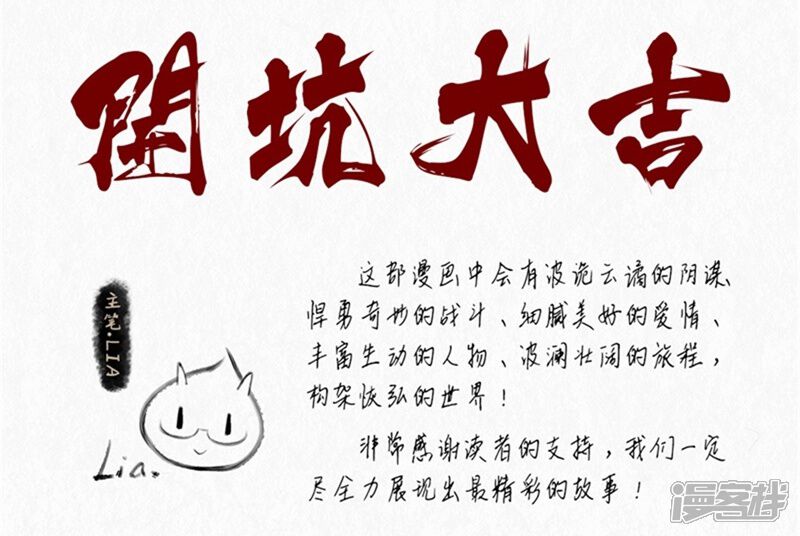 開坑大吉
主笔.LIA
Lia.
这部漫画中会有波诡云谲的阴谋、
悍勇奇妙的战斗、细腻美好的爱情、
丰富生动的人物、波澜壮阔的旅程，
构架恢弘的世界！
非常感谢读者的支持，我们一定
尽全力展现出最精彩的故事！
漫客栈